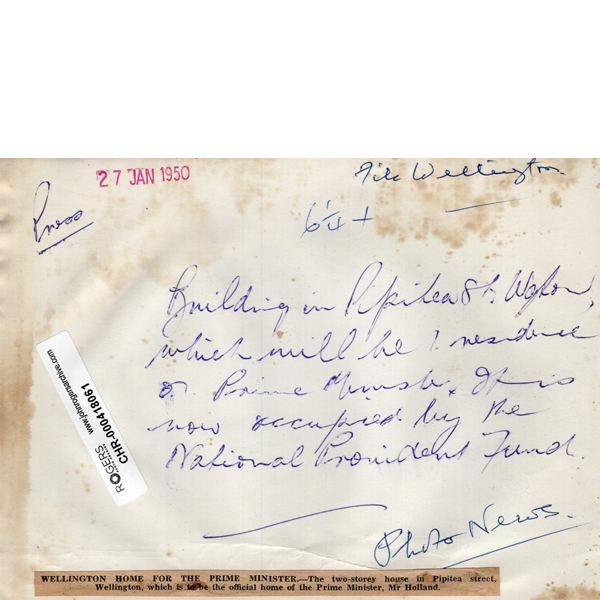 27 JAN 1950
File Wellington
Press
6¼ +
Building in Pipitea St Wgton,
which will be residence
of Prime Minister. It is
now occupied by the
National Provident Fund.
Photo News.
www.johnrogersarchive.com
CHR-000418061
ROGERS
WELLINGTON HOME FOR THE PRIME MINISTER.—The two-storey house in Pipitea street,
Wellington, which is to be the official home of the Prime Minister, Mr Holland.